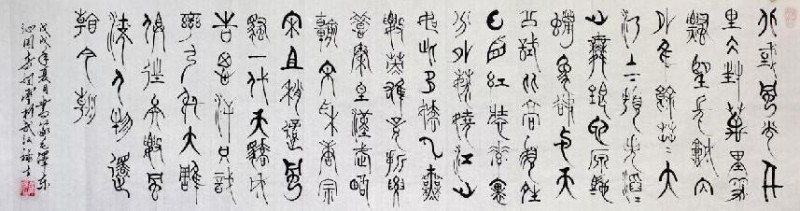 北國風光千
里冰封萬里雪
飄望長城內
外惟餘莽莽大
河上下頓失滔滔
山舞銀蛇原馳
蠟象欲與天
公試比高須晴
日看紅裝素裹
分外妖嬈江山
如此多嬌引無
數英雄競折腰
惜秦皇漢武略
輸文采唐宗
宋祖稍遜風
騷一代天驕成
吉思汗只識
彎弓射大雕
俱往矣數風
流人物還
看今朝
戊戌年夏月書毛澤東
沁園春雪